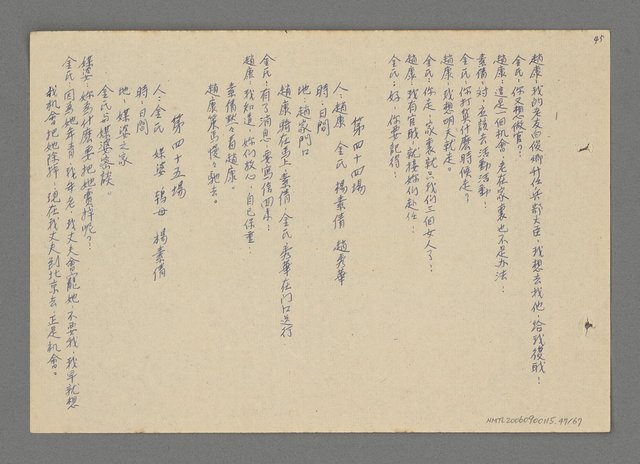 45
趙康：我的老友白俊卿升任兵部大臣，我想去找他，給我復職！
金氏：你又想做官？！
趙康：這是一個机會！老在家裏也不是办法！
素倩：对！应該去活動活動！
金氏：你打算什麼時候走？
趙康：我想明天就走。
金氏：你走！家裏就只我们三個女人了！
趙康：我有官職，就接妳们赴任！
金氏：好！你要記得！
第四十四場
人：趙康 金氏 楊素倩 趙秀華
時：日間
地：趙家門口
趙康騎在馬上，素倩、金氏、秀華在门口送行
金氏：有了消息，要寫信回來！
趙康：我知道，妳们放心，自己保重！
素倩默々看趙康。
趙康策馬慢々馳去。
第四十五場
人：金氏 媒婆 鴇母 楊素倩
時：日間
地：媒婆之家
金氏与媒婆密談。
媒婆：妳為什麼要把她賣掉呢？
金氏：因為她年青，我年老，我丈夫會寵她，不要我，我早就想
我机會把她除掉！現在我丈夫到北京去，正是机會。
NMTL20060900115.47/67